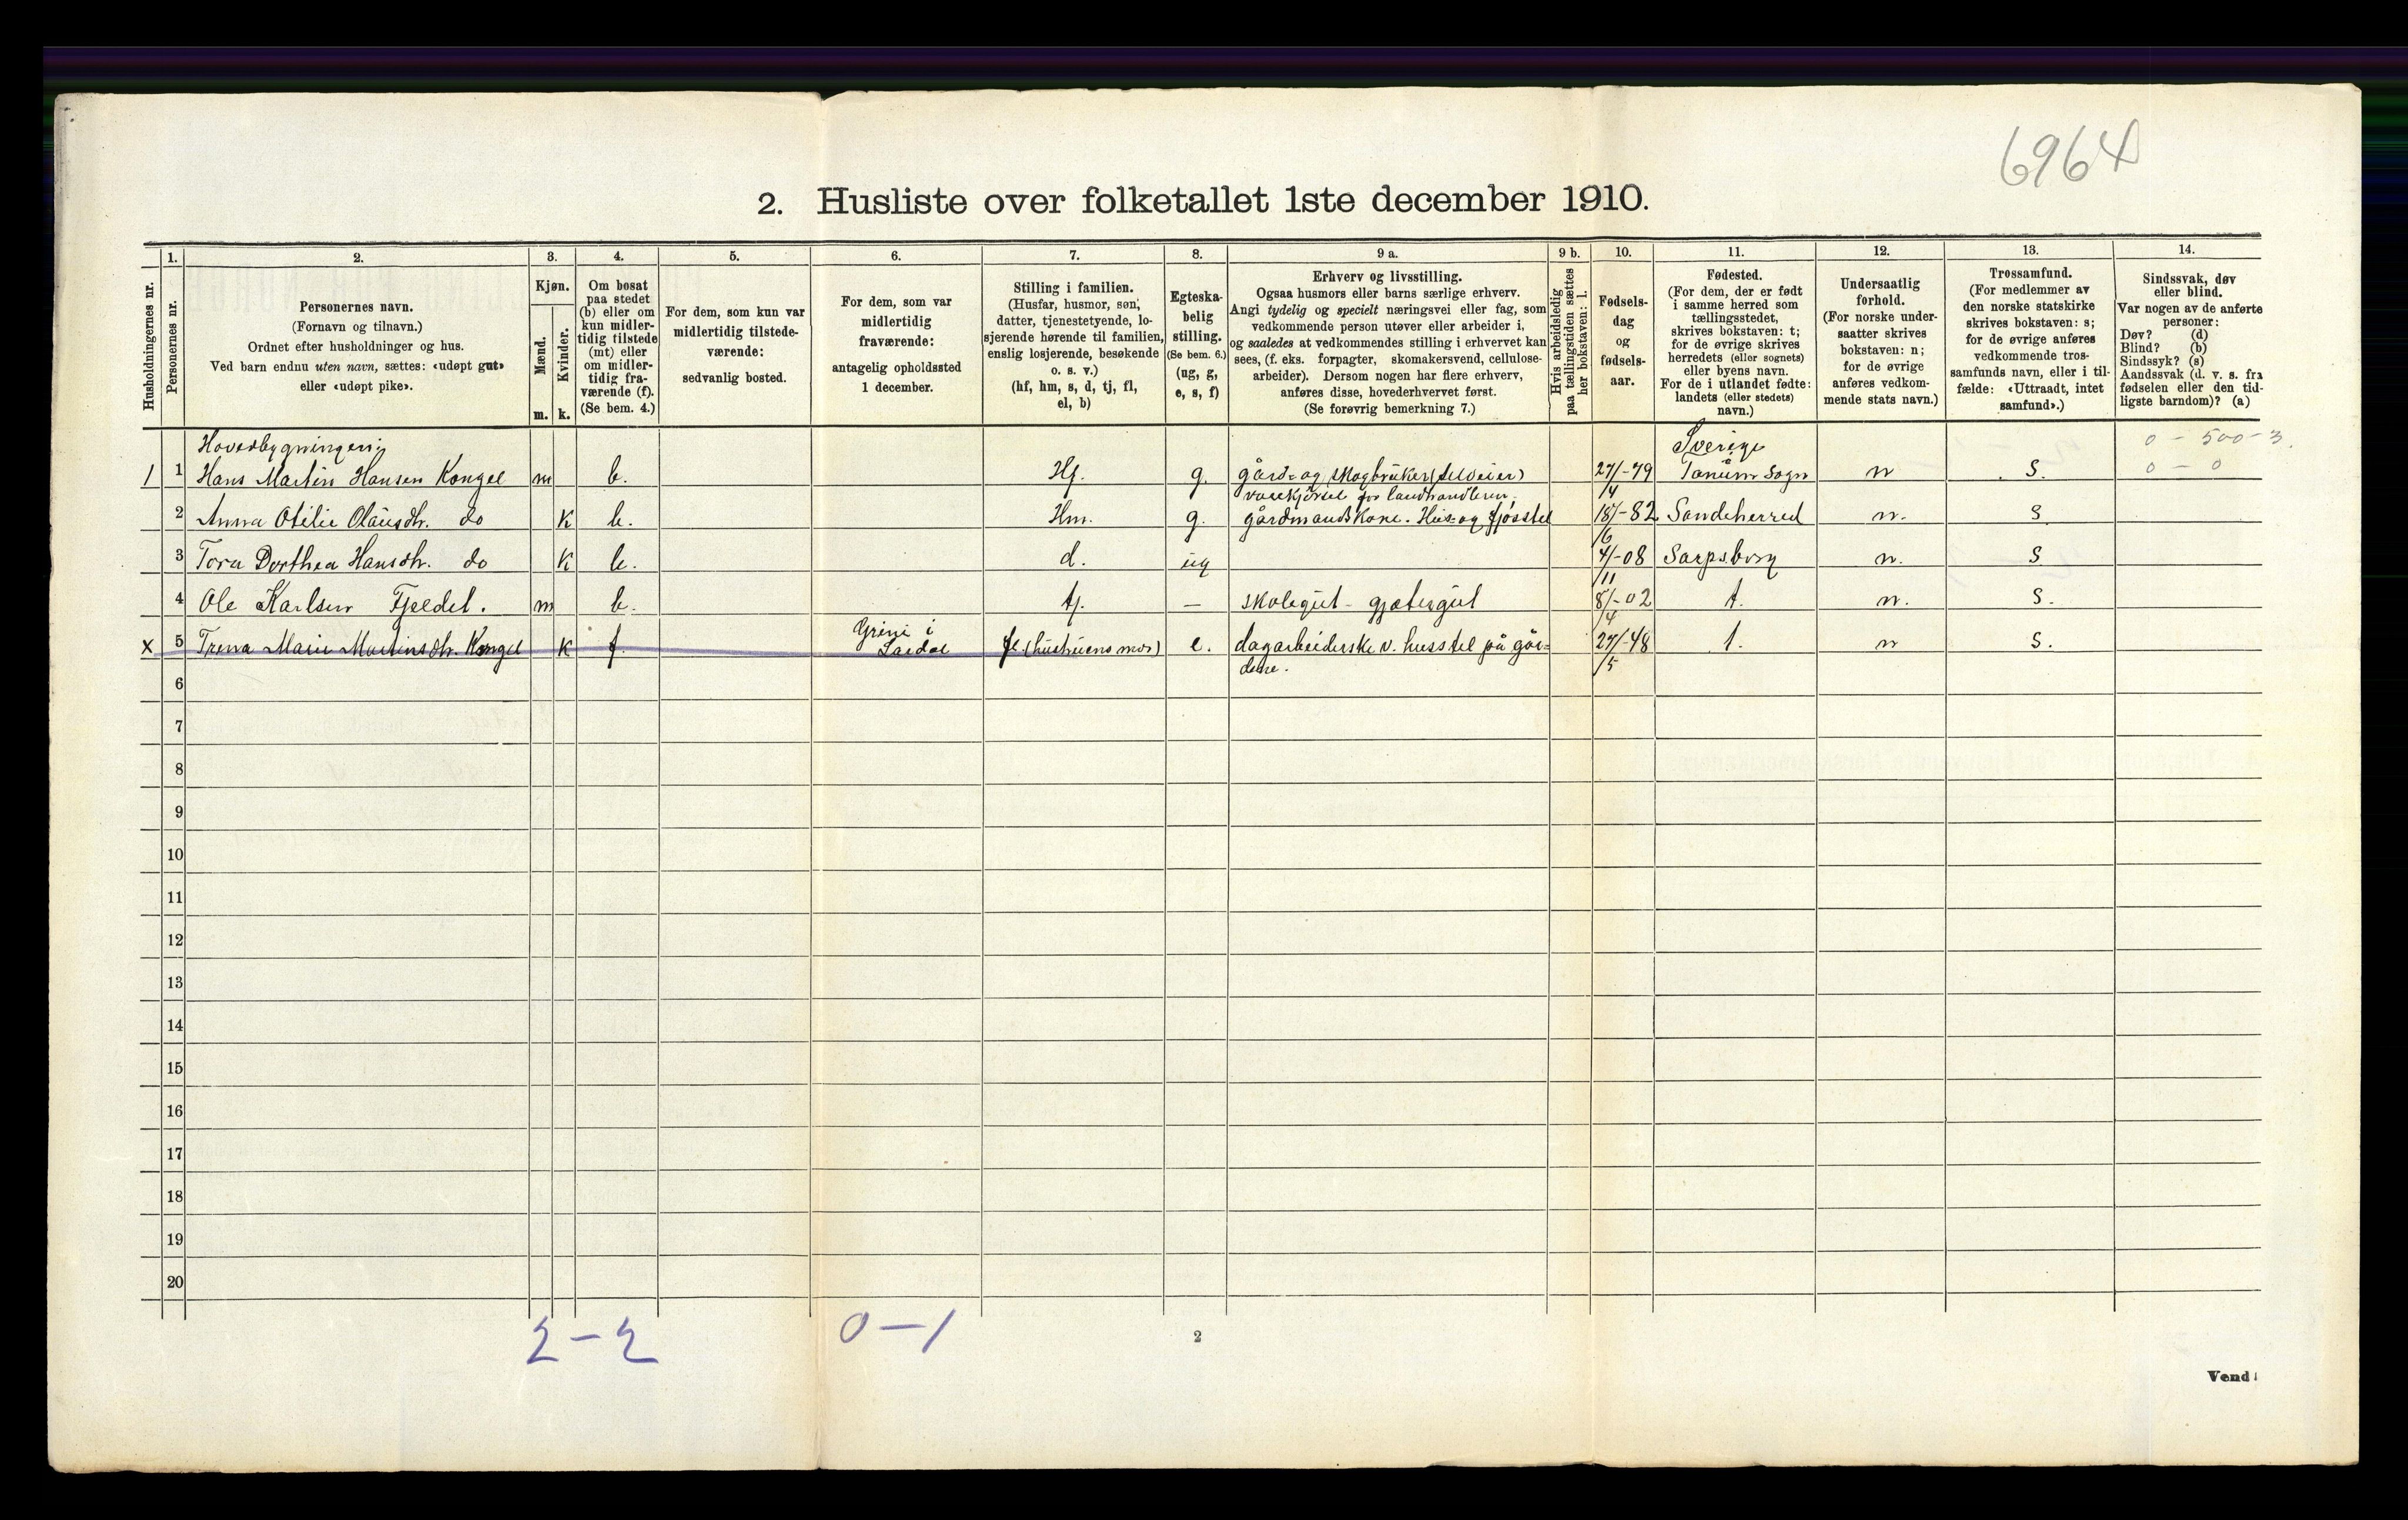 6964
2. Husliste over folketallet 1ste december 1910.
Husholdningernes nr.
1.
Personernes nr.
2.
Personernes navn.
(Fornavn og tilnavn.)
Ordnet efter husholdninger og hus.
Ved barn endnu uten navn, sættes: «udøpt gut»
eller «udøpt pike».
3.
Kjøn.
Mænd.
m.
Kvinder.
k.
4.
Om bosat
paa stedet
(b) eller om
kun midler-
tidig tilstede
(mt) eller
om midler-
tidig fra-
værende (f).
(Se bem. 4.)
5.
For dem, som kun var
midlertidig tilstede-
værende:
sedvanlig bosted.
6.
For dem, som var
midlertidig
fraværende:
antagelig opholdssted
1 december.
7.
Stilling i familien.
(Husfar, husmor, søn,
datter, tjenestetyende, lo-
sjerende hørende til familien,
enslig losjerende, besøkende
o. s. v.)
(hf, hm, s, d, tj, fl,
el, b)
8.
Egteska-
belig
stilling.
(Se bem. 6.)
(ug, g,
e, s, f)
9 a.
Erhverv og livsstilling.
Ogsaa husmors eller barns særlige erhverv.
Angi tydelig og specielt næringsvei eller fag, som
vedkommende person utøver eller arbeider i,
og saaledes at vedkommendes stilling i erhvervet kan
sees, (f. eks. forpagter, skomakersvend, cellulose-
arbeider). Dersom nogen har flere erhverv,
anføres disse, hovederhvervet først.
(Se forøvrig bemerkning 7.)
9 b.
Hvis arbeidsledig
paa tællingstiden sættes
her bokstaven: l.
10.
Fødsels-
dag
og
fødsels-
aar.
11.
Fødested.
(For dem, der er født
i samme herred som
tællingsstedet,
skrives bokstaven: t;
for de øvrige skrives
herredets (eller sognets)
eller byens navn.
For de i utlandet fødte:
landets (eller stedets)
navn.)
12.
Undersaatlig
forhold.
(For norske under-
saatter skrives
bokstaven: n;
for de øvrige
anføres vedkom-
mende stats navn.)
13.
Trossamfund.
(For medlemmer av
den norske statskirke
skrives bokstaven: s;
for de øvrige anføres
vedkommende tros-
samfunds navn, eller i til-
fælde: «Uttraadt, intet
samfund».)
14.
Sindssvak, døv
eller blind.
Var nogen av de anførte
personer:
Døv? (d)
Blind? (b)
Sindssyk? (s)
Aandssvak (d. v. s. fra
fødselen eller den tid-
ligste barndom)? (a)
Hovedbygningen: Sverige 0 - 500 - 3.
1 1 Hans Martin Hansen Kongel m b. Hf. g. gård- og skogbruker (selveier) 27/4-79 Tanum Sogn n S. 0 - 0
for landhandleren.
2 Anna Otilie Olausdh. do k b. Hm. g. gårdmandskone. Hus- og fjøsstel 18/6-82 Sandeherred n. S
3 Tora Dorthea Hansdh. do k b. d. ug 4/11-08 Sarpsborg n. S
4 Ole Karlsen Fjeldet. m b. tj. — skolegut - gjætergut 8/4-02 t. n. S.
Grini i
x 5 Trena Marie Martinsdh. Kongel k f. Lardal fl. (hustruens mor) e. dagarbeiderske v. husstel på går- 27/5-48 t. n S.
dene.
6
7
8
9
10
11
12
13
14
15
16
17
18
19
20
2 - 2 0 - 1
2
Vend!